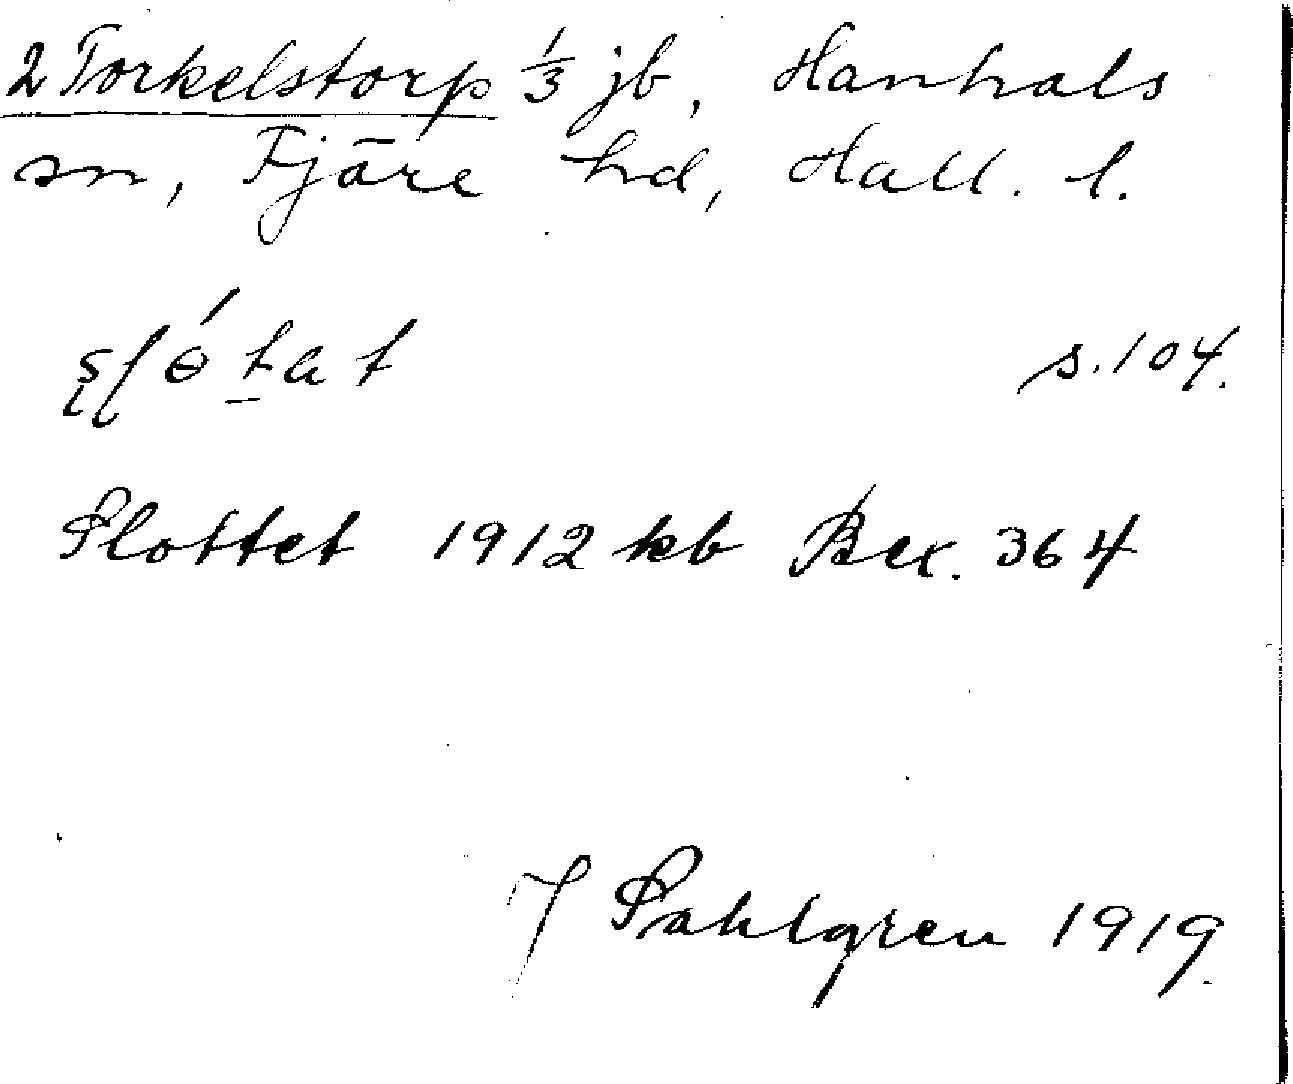 2 Torkelstorp 1/3 jb, Hanhals
sn, Fjäre hd, Hall. l.
s.104.
Slottet 1912 kb Bex. 364
J Sahlgren 1919.